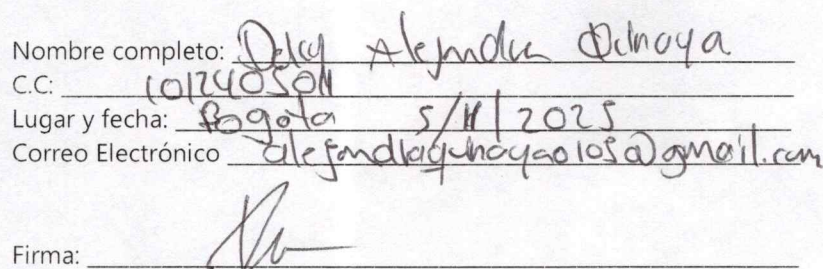 Nombre completo: Deicy Alejandra Quinoya
C.C: 1012405011
Lugar y fecha: Bogota 5/11/2025
Correo Electrónico alejandraquinoya0105@gmail.com
Firma: